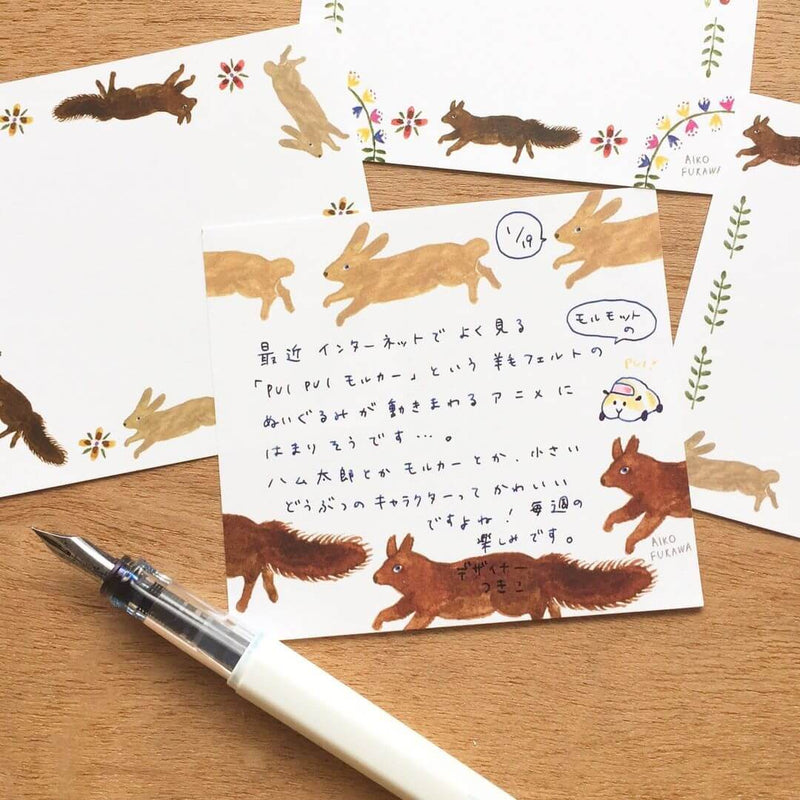 AIKO
FUKAWA
1/19
モルモット
の
PUI!
最近 インターネットで よく見る
「PUI PUI モルカー」という 羊毛フェルトの
ぬいぐるみが 動きまわる アニメに
はまりそうです…。
ハム太郎とか モルカーとか、小さい
どうぶつの キャラクターって かわいい
ですよね! 毎週の
楽しみです。
デザイナー
つきこ
AIKO
FUKAWA